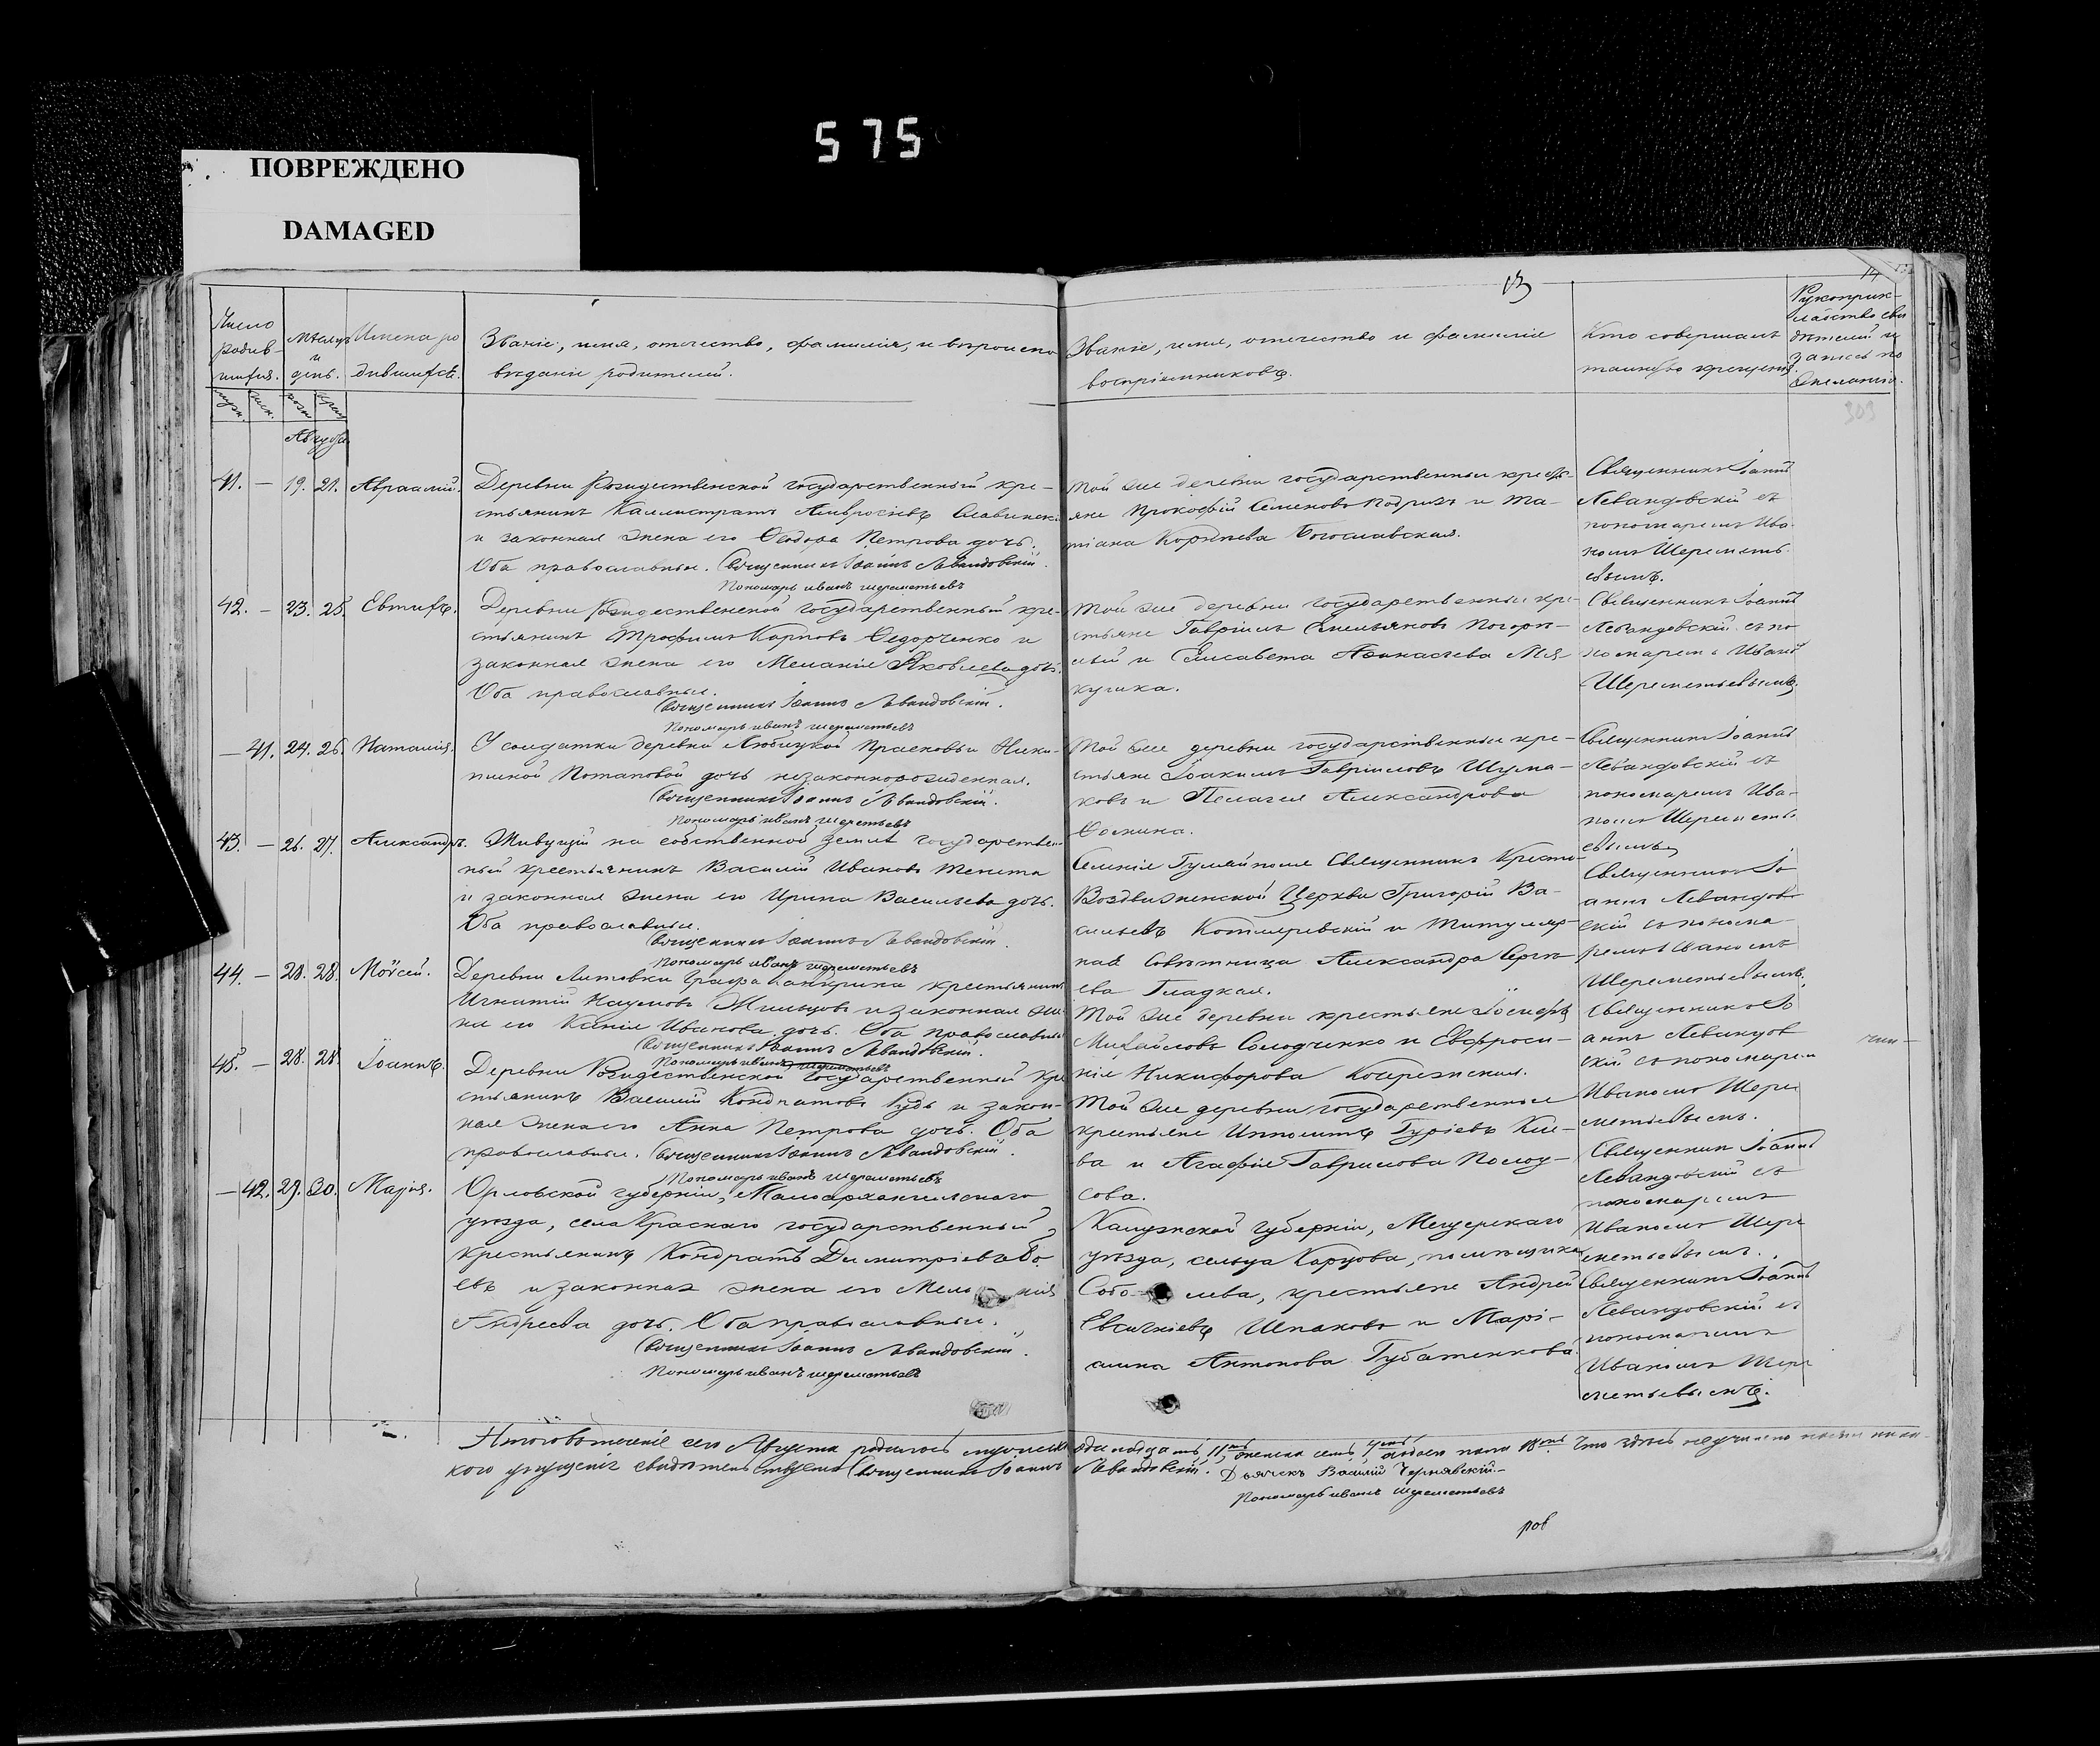 575
ПОВРЕЖДЕНО
DAMAGED
13
14
Число родив-шихся.
Мѣсяцъ и день.
Имена родившихся.
Званіе, имя, отечество, фамилія, и вѣроиспо
вѣданіе родителей.
Званіе, имя, отечество и фамиліе
воспріемниковъ.
Кто совершалъ
таинство крещенія
Рукоприк-
ладство сви
дѣтелей и
запись по
желанію.
303
Августъ
41. — 19. 21. Авраамій.
Деревни Рождественской государственный кре-
стьянинъ Каллистратъ Амвросіевъ Славинск.
и законная жена его Ѳеодора Петрова дочь.
Оба православные. Священникъ Іоаннъ Левандовскій.
Пономарь иванъ шереметьевъ
Той же деревни государственные кресть-
яне Прокофій Семеновъ Подризъ и Та-
тіана Корнѣева Богославская.
Священникъ Іоаннъ
Левандовскій съ
пономаремъ Ива-
номъ Шереметь-
евымъ.
42. — 23. 25. Евтихъ.
Деревни Рождественской государственный кре-
стьянинъ Трофимъ Карповъ Ѳедорченко и
законная жена его Меланія Яковлева дочь.
Оба православные.
Священникъ Іоаннъ Левандовскій.
Пономарь иванъ шереметьевъ
Той же деревни государственные кре-
стьяне Гавріилъ Емельяновъ Погорѣ-
лый и Елисавета Аѳанасіева Мя-
кушка.
Священникъ Іоаннъ
Левандовскій съ по
номаремъ Иваномъ
Шереметьевымъ.
— 41. 24. 26. Наталія.
У солдатки деревни Любицкой Прасковьи Ники-
тиной Потаповой дочь незаконнорожденная.
Священникъ Іоаннъ Левандовскій.
Пономарь иванъ шереметьевъ
Той же деревни государственные кре-
стьяне Іоакимъ Гавріиловъ Шума-
ковъ и Пелагея Александрова
Фомина.
Священникъ Іоаннъ
Левандовскій съ
пономаремъ Ива-
номъ Шереметь-
евымъ
43. — 26. 27. Александръ.
Живущій на собственной землѣ государствен-
ный крестьянинъ Василій Ивановъ Тенета
и законная жена его Ирина Васильева дочь.
Оба православные.
Священникъ Іоаннъ Левандовскій.
Пономарь иванъ шереметьевъ
Селенія Гуляйполя Священникъ Кресто-
Воздвиженской Церкви Григорій Ва-
сильевъ Котляревскій и Титуляр-
ная Совѣтница Александра Сергѣ-
ева Гладкая.
Священникъ Іо
аннъ Левандов
скій съ понома
ремъ Иваномъ
Шереметьевымъ.
44. — 28. 28. Моѵсей.
Деревни Литовки Графа Канкрина крестьянинъ
Игнатій Наумовъ Жильцовъ и законная же
на его Ксенія Иванова дочь. Оба православные
Священникъ Іоаннъ Левандовскій.
Пономарь иванъ шереметьевъ
Той же деревни крестьяне Іосифъ
Михайловъ Солодченко и Евфроси-
нія Никифорова
Священникъ Іо
аннъ Левандов
скій съ пономарем
Иваномъ Шере
метьевымъ.
45. — 28. 28. Іоаннъ.
Деревни Рождественской Государственный кре
стьянинъ Василій Кондратовъ Гудь и закон-
ная жена его Анна Петрова дочь. Оба
православные. Священникъ Іоаннъ Левандовскій.
Пономарь иванъ шереметьевъ
Той же деревни государственные
крестьяне Ипполитъ Гуріевъ Кле-
ва и Агафія Гаврилова Полоу-
сова.
Священникъ Іоаннъ
Левандовскій съ
пономаремъ
Иваномъ Шере
метьевымъ.
— 42. 29. 30. Марія.
Орловской губерніи, Малоархангельскаго
уѣзда, села Краснаго государственный
крестьянинъ Кондратъ Димитріевъ Бо
евъ и законная жена его Мела нія
Андреева дочь. Оба православные.
Священникъ Іоаннъ Левандовскій.
Пономарь иванъ шереметьевъ
Калужской Губерніи, Мещерскаго
уѣзда, сельца Карцова, помѣщика
Собо лева, крестьяне Андрей
Евсигніевъ Шпаковъ и Марі-
амна Антонова Губатенкова
Священникъ Іоаннъ
Левандовскій съ
пономаремъ
Иваномъ Шере
метьевымъ.
Итого въ теченіе сего Августа родилось мужеска пола 11ть, женска семь, 7мь, обоего пола 18ть. Что здѣсь неучинено никако-
кого упущенія свидѣтельствуемъ Священникъ Іоаннъ Левандовскій. Дьячекъ Василій Чернявскій.
Пономарь иванъ шереметьевъ